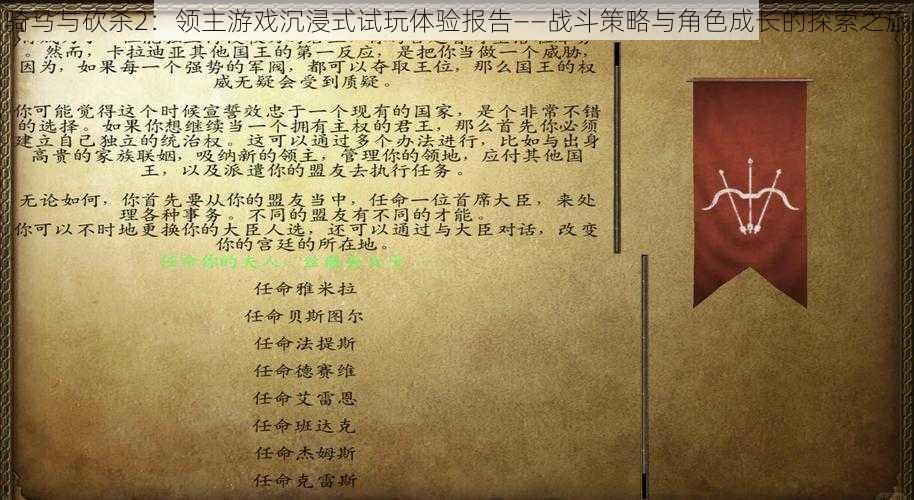 骑马与砍杀2：领主游戏沉浸式试玩体验报告——战斗策略与角色成长的探索之旅
。然而，卡拉迪亚其他国王的第一反应，是把你当做一个威胁，
因为，如果每一个强势的军阀，都可以夺取王位，那么国王的权
威无疑会受到质疑。
你可能觉得这个时候宣誓效忠于一个现有的国家，是个非常不错
的选择。如果你想继续当一个拥有主权的君王，那么首先你必须
建立自己独立的统治权。这可以通过多个办法进行，比如与出身
高贵的家族联姻，吸纳新的领主，管理你的领地，应付其他国
王，以及派遣你的盟友去执行任务。
无论如何，你首先要从你的盟友当中，任命一位首席大臣，来处
理各种事务。不同的盟友有不同的才能。
你可以不时地更换你的大臣人选，还可以通过与大臣对话，改变
你的宫廷的所在地。
任命你的夫人，
任命雅米拉
任命贝斯图尔
任命法提斯
任命德赛维
任命艾雷恩
任命班达克
任命杰姆斯
任命克雷斯